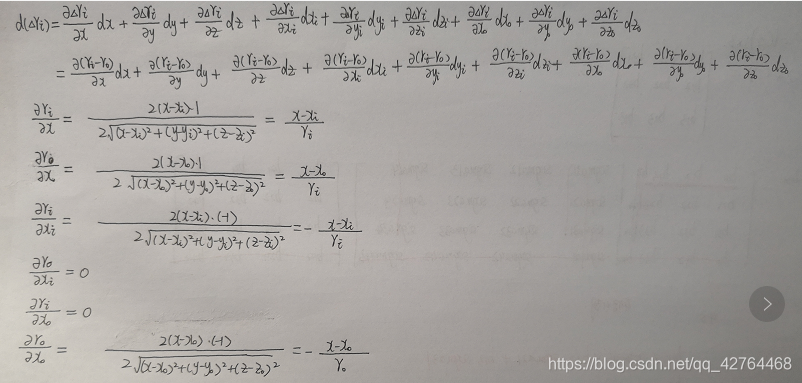 d(Δri)= ∂Δri/∂x dx + ∂Δri/∂y dy + ∂Δri/∂z dz + ∂Δri/∂xi dxi + ∂Δri/∂yi dyi + ∂Δri/∂zi dzi + ∂Δri/∂x0 dx0 + ∂Δri/∂y0 dy0 + ∂Δri/∂z0 dz0
= ∂(ri-r0)/∂x dx + ∂(ri-r0)/∂y dy + ∂(ri-r0)/∂z dz + ∂(ri-r0)/∂xi dxi + ∂(ri-r0)/∂yi dyi + ∂(ri-r0)/∂zi dzi + ∂(ri-r0)/∂x0 dx0 + ∂(ri-r0)/∂y0 dy0 + ∂(ri-r0)/∂z0 dz0
∂ri/∂x = 2(x-xi)·1 / 2√(x-xi)²+(y-yi)²+(z-zi)² = x-xi/ri
∂r0/∂x = 2(x-x0)·1 / 2√(x-x0)²+(y-y0)²+(z-z0)² = x-x0/ri
∂ri/∂xi = 2(x-xi)·(-1) / 2√(x-xi)²+(y-yi)²+(z-zi)² = - x-xi/ri
∂r0/∂xi = 0
∂ri/∂x0 = 0
∂r0/∂x0 = 2(x-x0)·(-1) / 2√(x-x0)²+(y-y0)²+(z-z0)² = - x-x0/r0
https://blog.csdn.net/qq_42764468